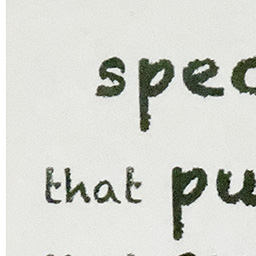 spec
that pu